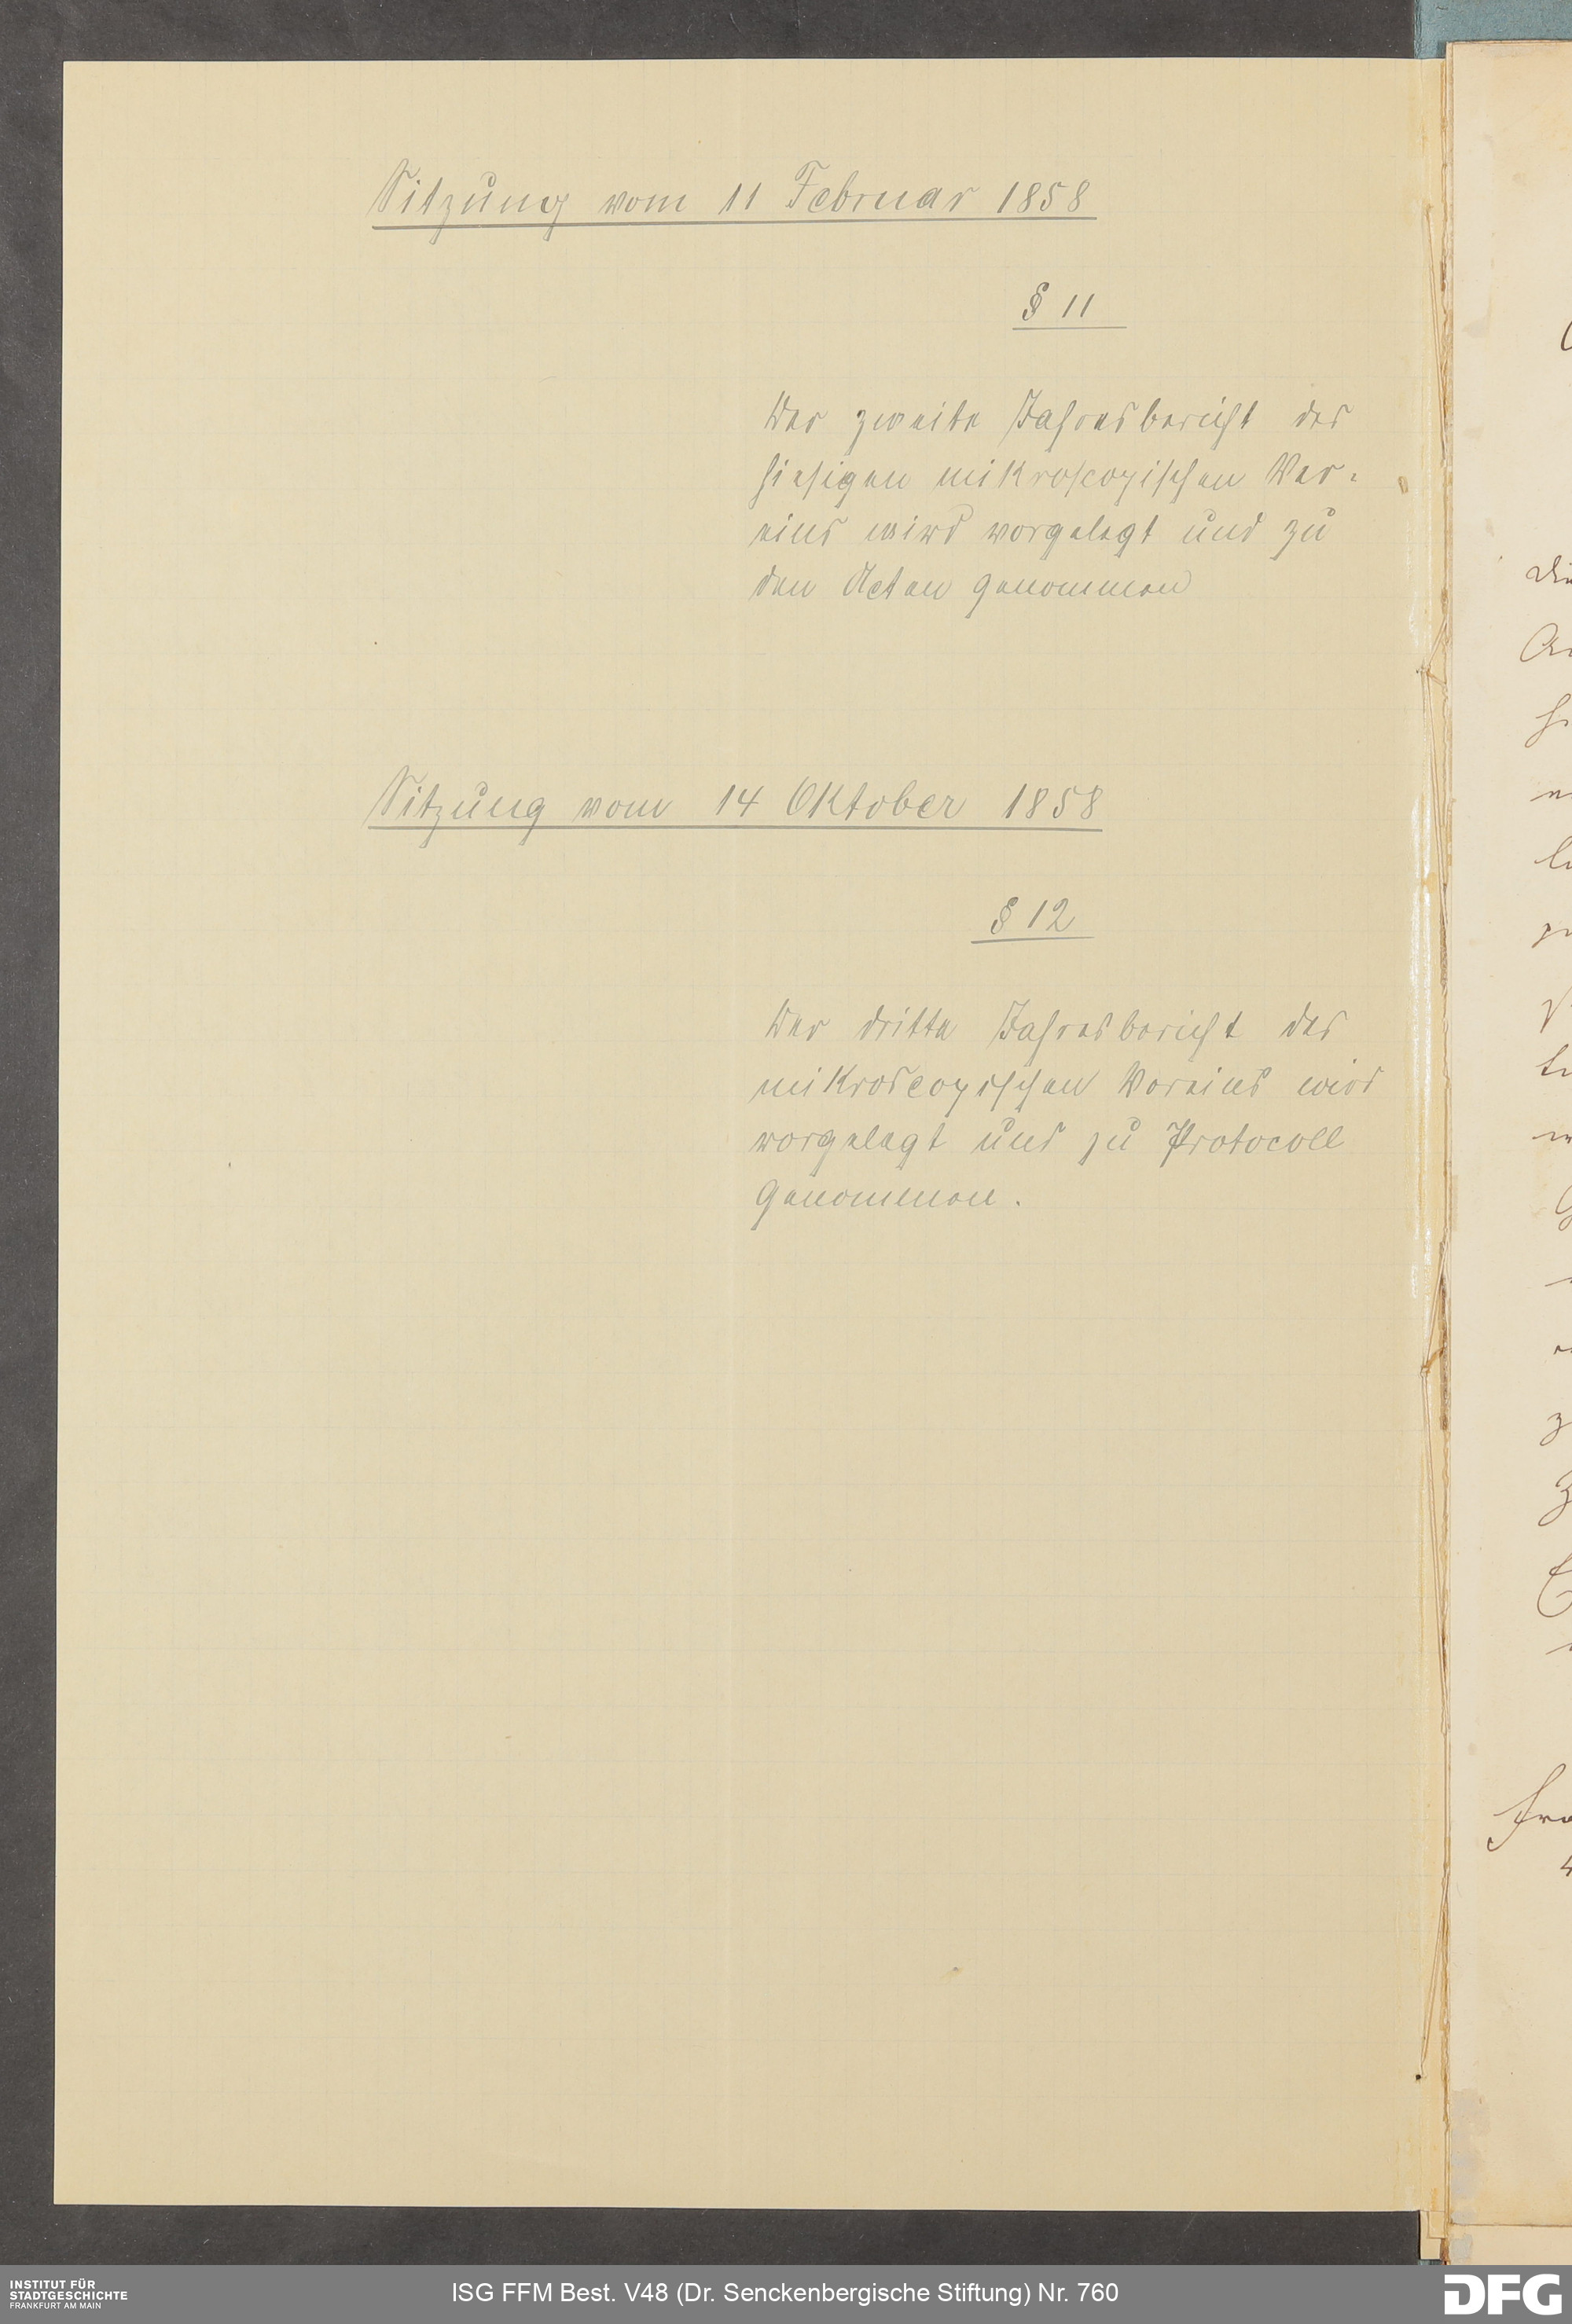 Sitzung vom 11 Februar 1858
§ 11
Der zweite Jahresbericht des
hiesigen mikroscopischen Ver-
eins wird vorgelegt und zu
den Acten genommen
Sitzung vom 14 Oktober 1858
§ 12
Der dritte Jahresbericht des
mikroscopischen Vereins wird
vorgelegt und zu Protocoll
genommen.
INSTITUT FÜR
STADTGESCHICHTE
FRANKFURT AM MAIN
ISG FFM Best. V48 (Dr. Senckenbergische Stiftung) Nr. 760
DFG